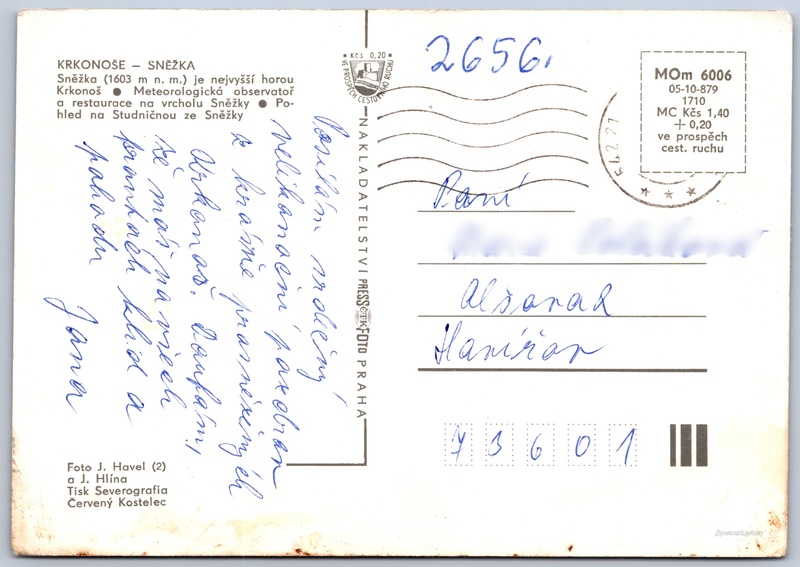 KRKONOŠE — SNĚŽKA
Sněžka (1603 m n. m.) je nejvyšší horou
Krkonoš ● Meteorologická observatoř
a restaurace na vrcholu Sněžky ● Po-
hled na Studničnou ze Sněžky
Posílám srdečný
velikonoční pozdrav
z krásně prosněžených
Krkonoš. Doufám,
že máš na všech
frontách klid a
pohodu
Jana
Foto J. Havel (2)
a J. Hlína
Tisk Severografia
Červený Kostelec
★ Kčs 0,20 ★
VE PROSPĚCH CESTOVNÍHO RUCHU
NAKLADATELSTVÍ PRESSFOTO PRAHA
2656.
MOm 6006
05-10-879
1710
MC Kčs 1,40
+ 0,20
ve prospěch
cest. ruchu
Paní
Havířov
73601